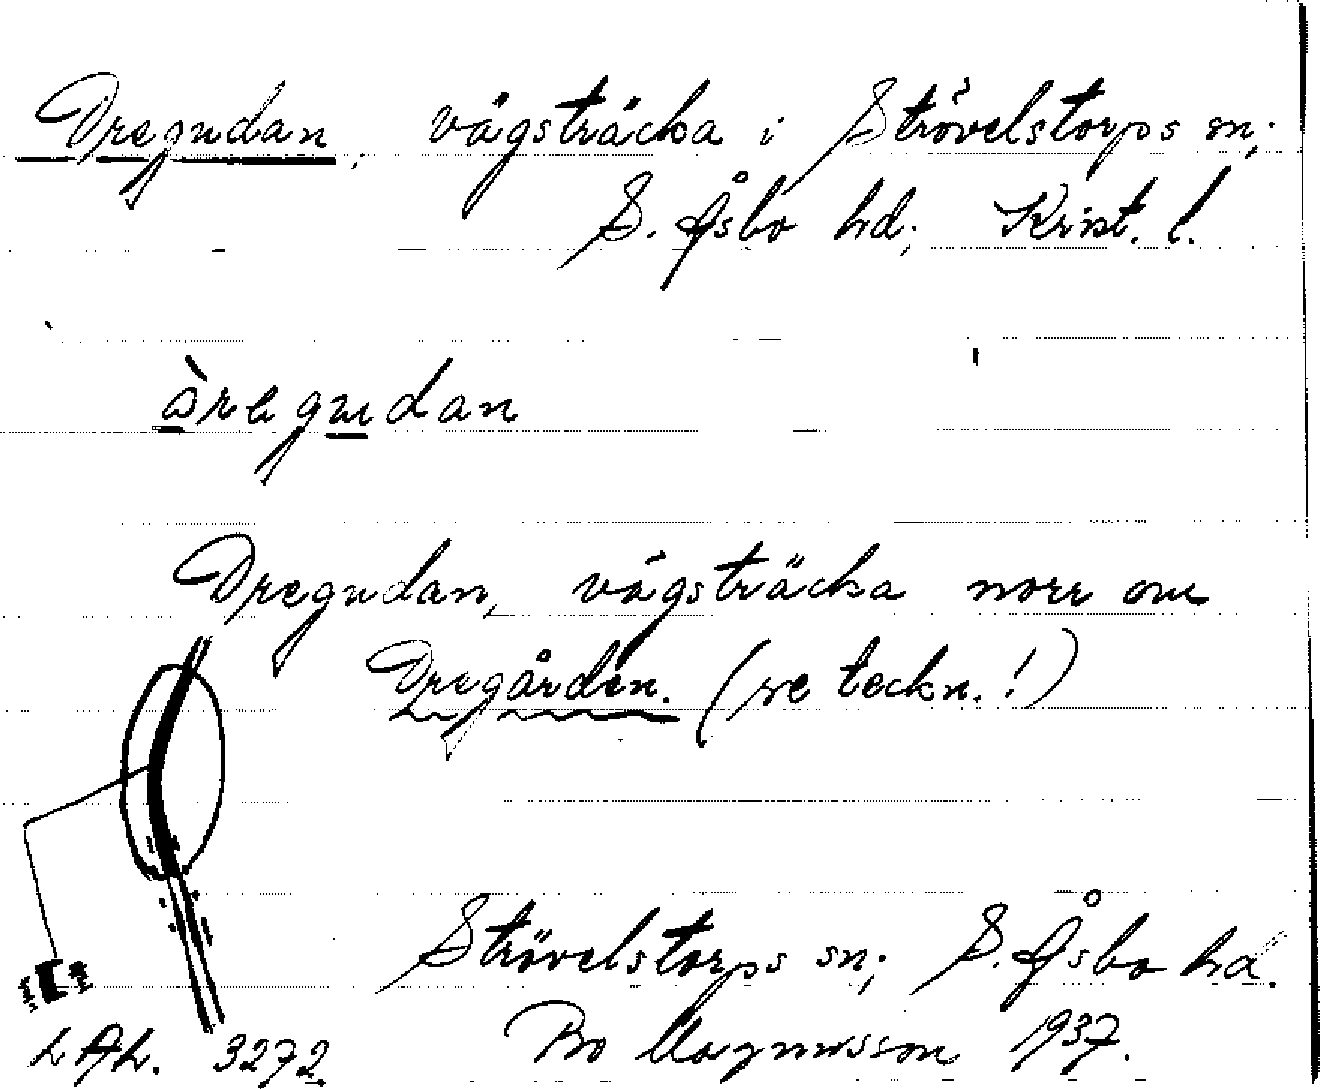 Dregudan, vägsträcka i Strövelstorps sn;
S. Åsbo hd; Krist. l.
dregudan
Dregudan, vägsträcka norr om
Dregården. (se teckn.!)
Strövelstorps sn; S. Åsbo hd.
LAL. 3272 Bo Magnusson 1937.